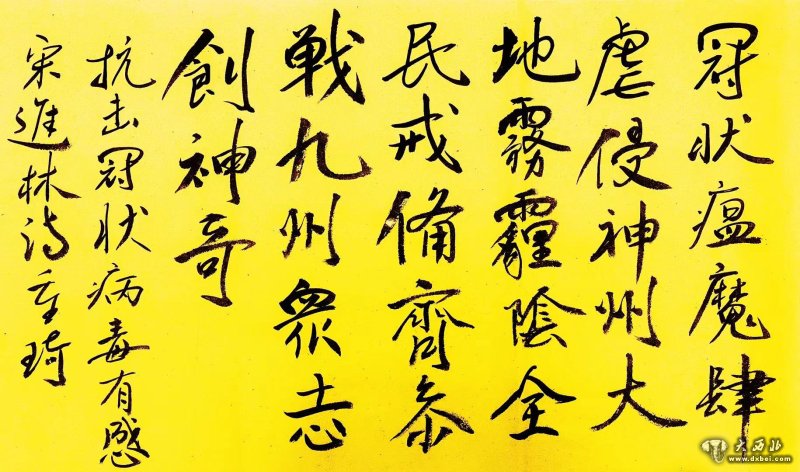 冠状瘟魔肆
虐侵神州大
地霧霾陰全
民戒備齊参
戦九州眾志
創神奇
抗击冠状病毒有感
宋進林诗琦
大西北
www.dxbei.com